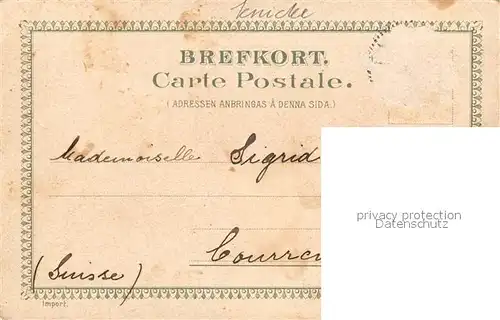 BREFKORT.
Carte Postale.
(ADRESSEN ANBRINGAS Å DENNA SIDA.)
Mademoiselle Sigrid
privacy protection
Datenschutz
(Suisse)
Import.